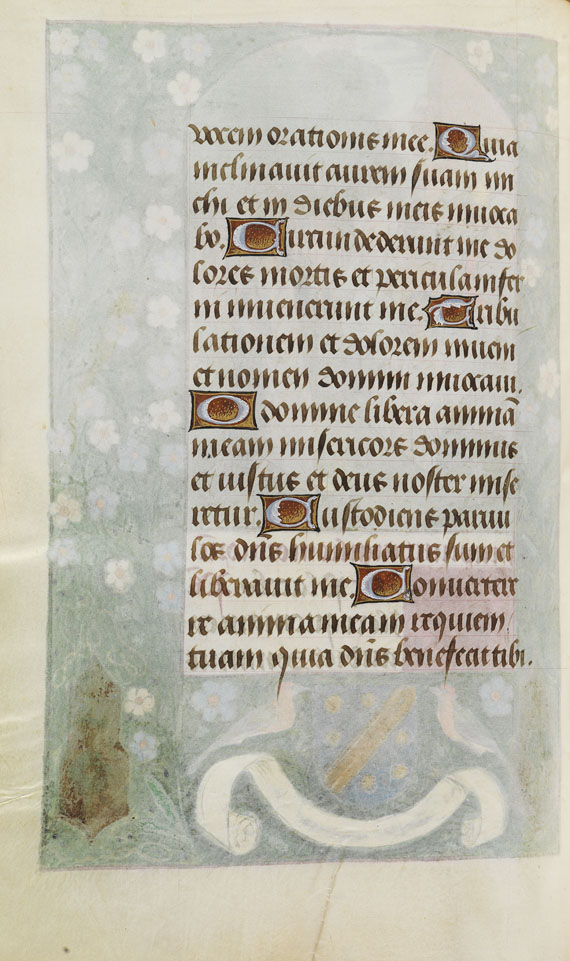 vocem orationis mee. Quia
inclinavit aurem suam mi
chi et in diebus meis invoca
bo. Circundederunt me do
lores mortis et pericula infer
ni invenerunt me. Tribu
lationem et dolorem inveni
et nomen domini invocavi.
O domine libera animā
meam misericors dominus
et iustus et deus noster mise
retur. Custodiens parvu
los dn̄s humiliatus sum et
liberavit me. Converter
re anima mea in requiem
tuam quia dn̄s benefecit tibi.